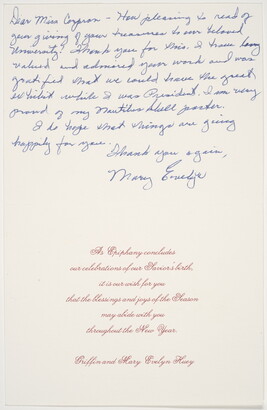 Dear Miss Cyprow - How pleasing to read of
your giving of your treasures to our beloved
University! Thank you for this. I have long
valued and admired your work and was
gratified that we could have the great
exhibit while I was President. I am very
proud of my Nautilus shell poster.
I do hope that things are going
happily for you.
Thank you again,
Mary Evelyn
As Epiphany concludes
our celebrations of our Savior's birth,
it is our wish for you
that the blessings and joys of the Season
may abide with you
throughout the New Year.
Griffin and Mary Evelyn Huey